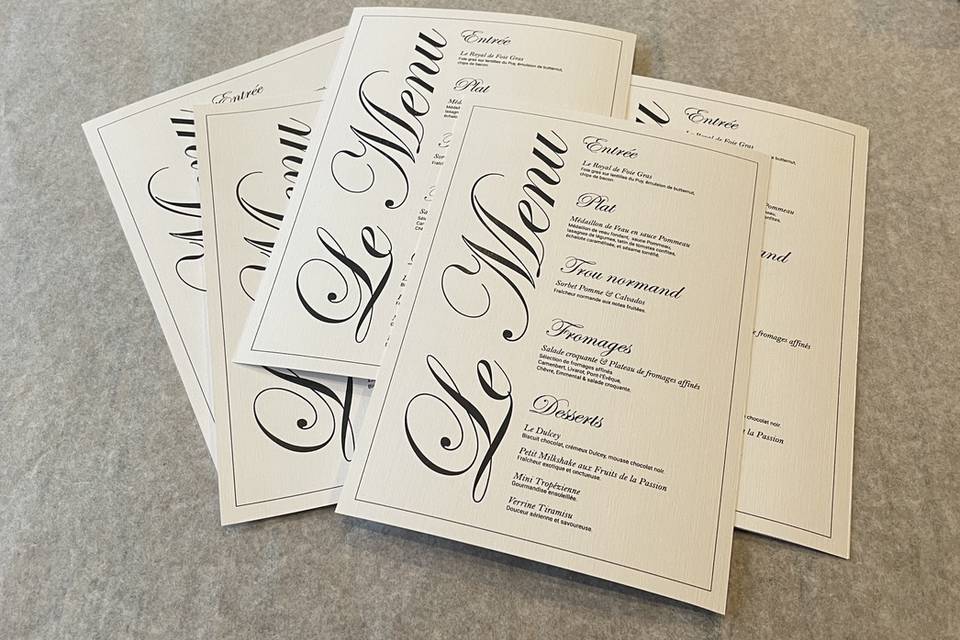 Le Menu
Entrée
Le Royal de Foie Gras
Foie gras sur lentilles du Puy, émulsion de butternut,
chips de bacon.
Plat
Médaillon de Veau en sauce Pommeau
Médaillon de veau fondant, sauce Pommeau,
lasagnes de légumes, tatin de tomates confites,
échalote caramélisée, et sésame torréfié.
Trou normand
Sorbet Pomme & Calvados
Fraîcheur normande aux notes fruitées.
Fromages
Salade croquante & Plateau de fromages affinés
Sélection de fromages affinés
Camembert, Livarot, Pont-l'Évêque,
Chèvre, Emmental & salade croquante.
Desserts
Le Dulcey
Biscuit chocolat, crémeux Dulcey, mousse chocolat noir.
Petit Milkshake aux Fruits de la Passion
Fraîcheur exotique et onctueuse.
Mini Tropézienne
Gourmandise ensoleillée.
Verrine Tiramisu
Douceur aérienne et savoureuse.
Le Menu
Entrée
Le Royal de Foie Gras
Foie gras sur lentilles du Puy, émulsion de butternut,
chips de bacon.
Plat
Entrée
Le Royal de Foie Gras
butternut,
Pommeau
confites,
normand
de fromages affinés
chocolat noir.
de la Passion
Entrée